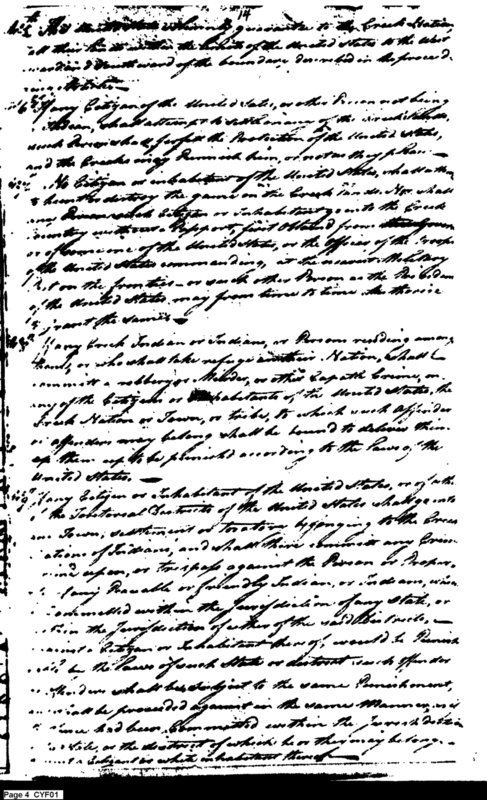 14
The United States solemnly guarantee to the Creek Nation,
all their lands within the limits of the United States to the West
ward and Southward of the boundary described in the preced
ing Article
If any Citizen of the United States, or other Person not being
Indian, shall attempt to settle on any of the Creeks lands,
such Person shall forfeit the Protection of the United States,
and the Creeks may Punish him, or not as they please
No Citizen or inhabitant of the United States, shall attempt
to hunt or destroy the game on the Creek lands. Nor shall
any such Citizen or Inhabitant go into the Creek
Country without a Passport, first obtained from
of some one of the United States, or the Officer of the Troops
of the United States commanding, at the nearest Military
Post on the frontiers or such other Person as the President
of the United States may from time to time Authorise
to grant the same
If any Creek Indian or Indians, or Persons residing among
them, or who shall take refuge in their Nation, shall
commit a robbery or Murder, or other Capital Crime, on
any of the Citizens or Inhabitants of the United States, the
Creek Nation or Town, or tribe, to which such Offender
or offenders may belong shall be bound to deliver him
up to be punished according to the Laws of the
United States.
If any Citizen or Inhabitant of the United States, or of either
of the Territorial Districts of the United States shall go into
any Town, settlement or territory belonging to the Creek
Nation of Indians, and shall there commit any Crime
upon, or trespass against the Person or Proper-
of any Peaceable or friendly Indian, or Indians, which
Committed within the Jurisdiction of any State, or
within the Jurisdiction of either of the said Districts,
against a Citizen or Inhabitant thereof, would be Punish
by the Laws of such State or district such Offender
or Offenders shall be subject to the same Punishment,
and shall be proceeded against in the same Manner as if
offence had been Committed within the Jurisdiction
State, or the district of which he or they may belong
against a Citizen or white inhabitant thereof
Page 4 CYF01